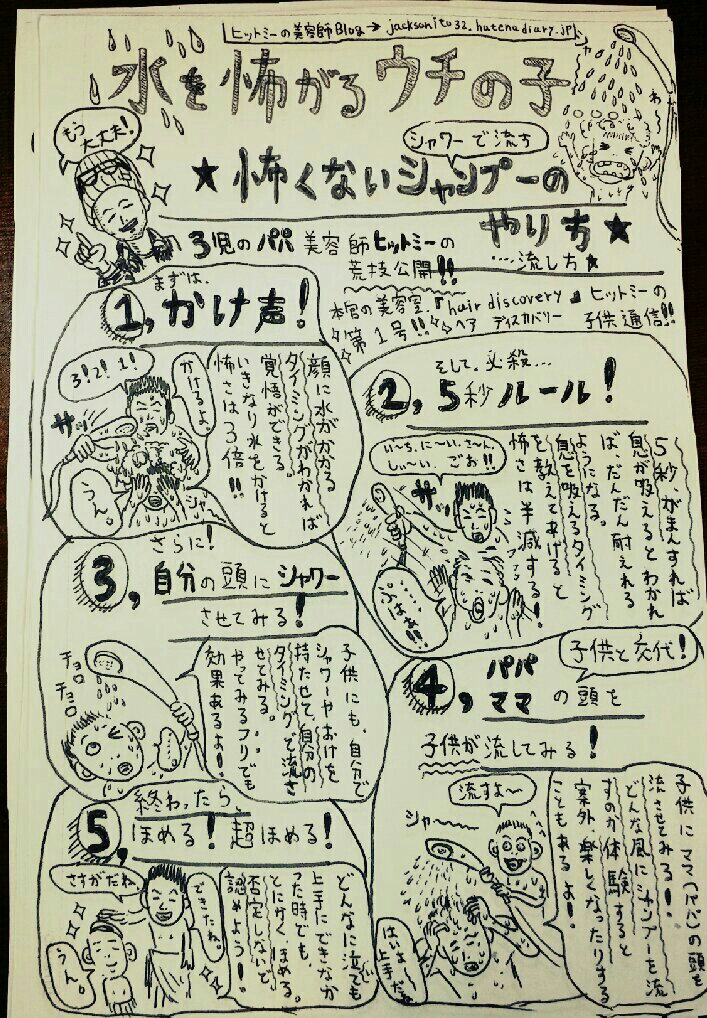 ヒットミーの美容師Blog→ jacksonito32.hatenadiary.jp
水を怖がるウチの子
もう
大丈夫!
シャー
わ〜
シャワーで流す
★怖くないシャンプーの
やり方★
…流し方★
3児のパパ美容師ヒットミーの
荒技公開!!
本宮の美容室、『hair discovery』ヒットミーの
ヘア ディスカバリー 子供通信!!
第1号!!
まずは、
1, かけ声!
3!2!1!
かけるよ
サッ
うん。
シャー
顔に水がかかる
タイミングがわかれば
覚悟ができる。
いきなり水をかけると
怖さは3倍!!
そして。必殺…
2, 5秒ルール!
い〜ち、に〜い、さ〜ん、
しぃ〜い、ごぉ!!
サッ
……ぷはぁ!!
5秒、がまんすれば
息が吸えるとわかれ
ば、だんだん耐えれる
ようになる。
息を吸えるタイミング
を教えてあげると
怖さは半減する!
さらに!
3, 自分の頭にシャワー
させてみる!
チョロ
チョロ
子供にも、自分で
シャワーやおけを
持たせて、自分の
タイミングで流さ
せてみる。
やってみるフリでも
効果あるよ!
子供と交代!
4, パパ
ママの頭を
子供が流してみる!
流すよ〜
シャ〜〜
はいよ〜
上手だね
子供にママ(パパ)の頭を
流させてみる!
どんな風にシャンプーを流
すのか体験すると
案外、楽しくなったりする
こともあるよ!
5, 終わったら、
ほめる!超ほめる!
さすがだね
できたね!
うん。
どんなに泣いても
上手にできなか
った時でも、
とにかく、ほめる。
否定しないで、
認めよう!